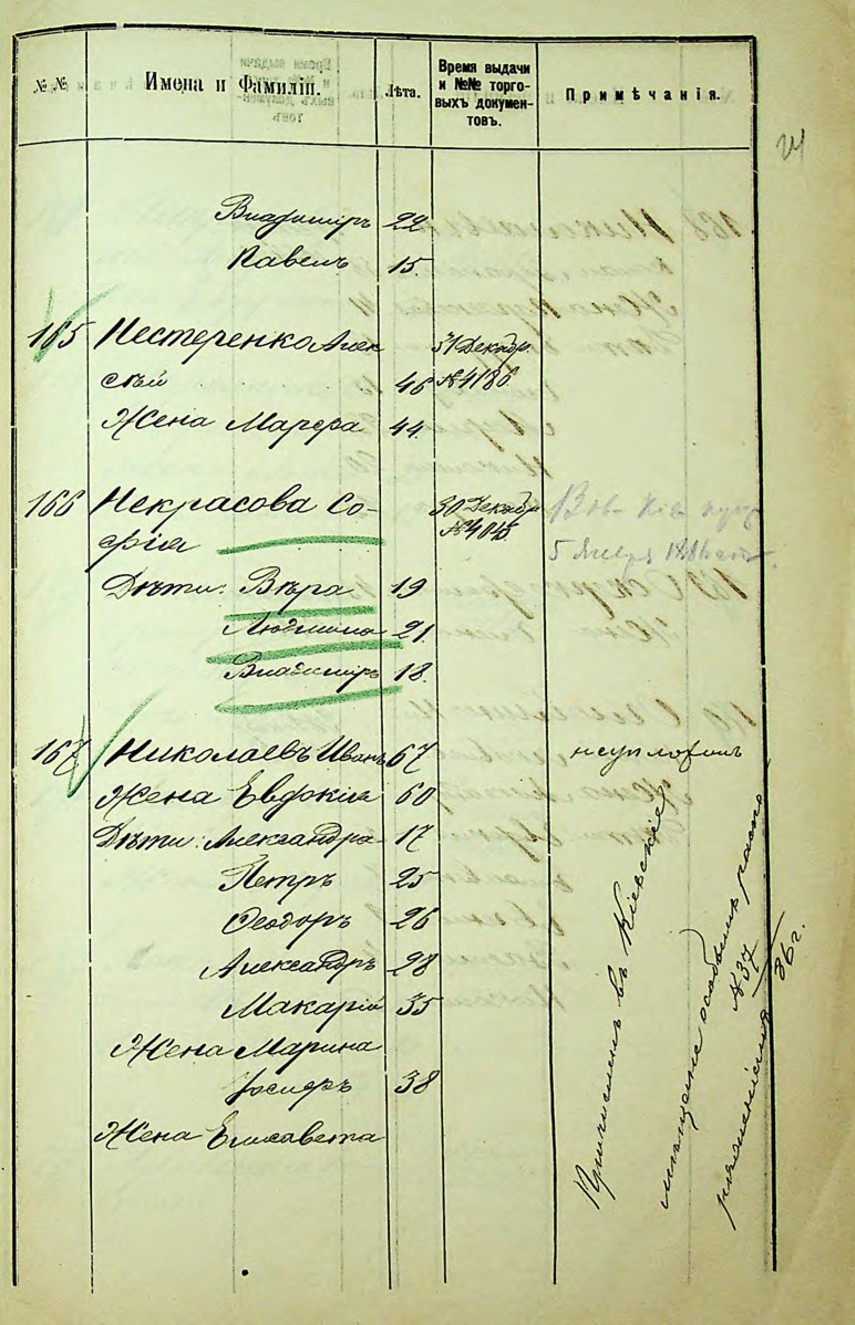 № №
Имена и Фамиліи.
Лѣта.
Время выдачи
и №№ торго-
выхъ докумен-
товъ.
Примѣчанія.
Владиміръ 22
Павелъ 15.
165 Нестеренко Алек
сѣй 46
31 Декабр.
№ 4186
Жена Марфа 44.
166 Некрасова Со-
фія
30 Декабр
№ 4045
Дѣти: Вѣра 19
Людмила 21.
Владиміръ 18.
167 Николаевъ Иванъ 67
Жена Евдокія 60
Дѣти: Александра 17
Петръ 25
Ѳеодоръ 26
Александръ 28
Макарій 35
Жена Марина
Іосифъ 38
Жена Елисавета
Причисленъ въ Кіевскіе
мѣщане особымъ
№ 37